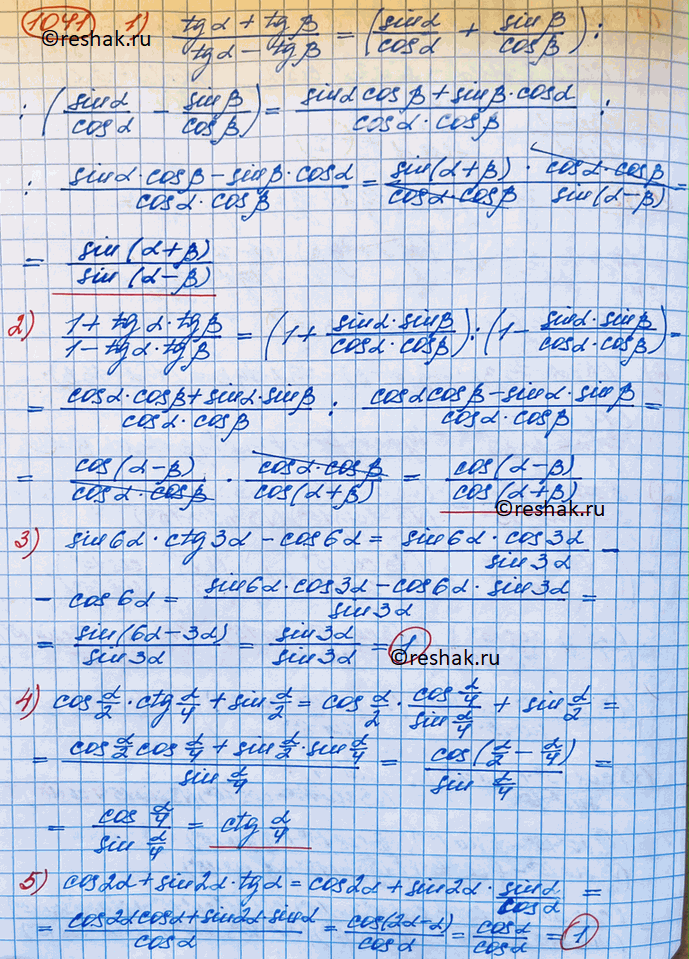 1041 1) (tgα + tgβ)/(tgα − tgβ) = (sinα/cosα + sinβ/cosβ) :
: (sinα/cosα − sinβ/cosβ) = (sinα cosβ + sinβ·cosα)/(cosα·cosβ) :
: (sinα·cosβ − sinβ·cosα)/(cosα·cosβ) = sin(α+β)/(cosα·cosβ) · (cosα·cosβ)/sin(α−β) =
= sin(α+β)/sin(α−β)
2) (1 + tgα·tgβ)/(1 − tgα·tgβ) = (1 + (sinα·sinβ)/(cosα·cosβ)) : (1 − (sinα·sinβ)/(cosα·cosβ)) =
= (cosα·cosβ + sinα·sinβ)/(cosα·cosβ) : (cosα cosβ − sinα·sinβ)/(cosα·cosβ) =
= cos(α−β)/(cosα·cosβ) · (cosα·cosβ)/cos(α+β) = cos(α−β)/cos(α+β)
reshak.ru
3) sin6α·ctg3α − cos6α = (sin6α·cos3α)/sin3α −
− cos6α = (sin6α·cos3α − cos6α·sin3α)/sin3α =
= sin(6α−3α)/sin3α = sin3α/sin3α = 1
reshak.ru
4) cos α/2 · ctg α/4 + sin α/2 = cos α/2 · (cos α/4)/(sin α/4) + sin α/2 =
= (cos α/2 cos α/4 + sin α/2 · sin α/4)/(sin α/4) = cos(α/2 − α/4)/(sin α/4) =
= (cos α/4)/(sin α/4) = ctg α/4
5) cos2α + sin2α·tgα = cos2α + sin2α · sinα/cosα =
= (cos2α cosα + sin2α·sinα)/cosα = cos(2α−α)/cosα = cosα/cosα = 1
reshak.ru